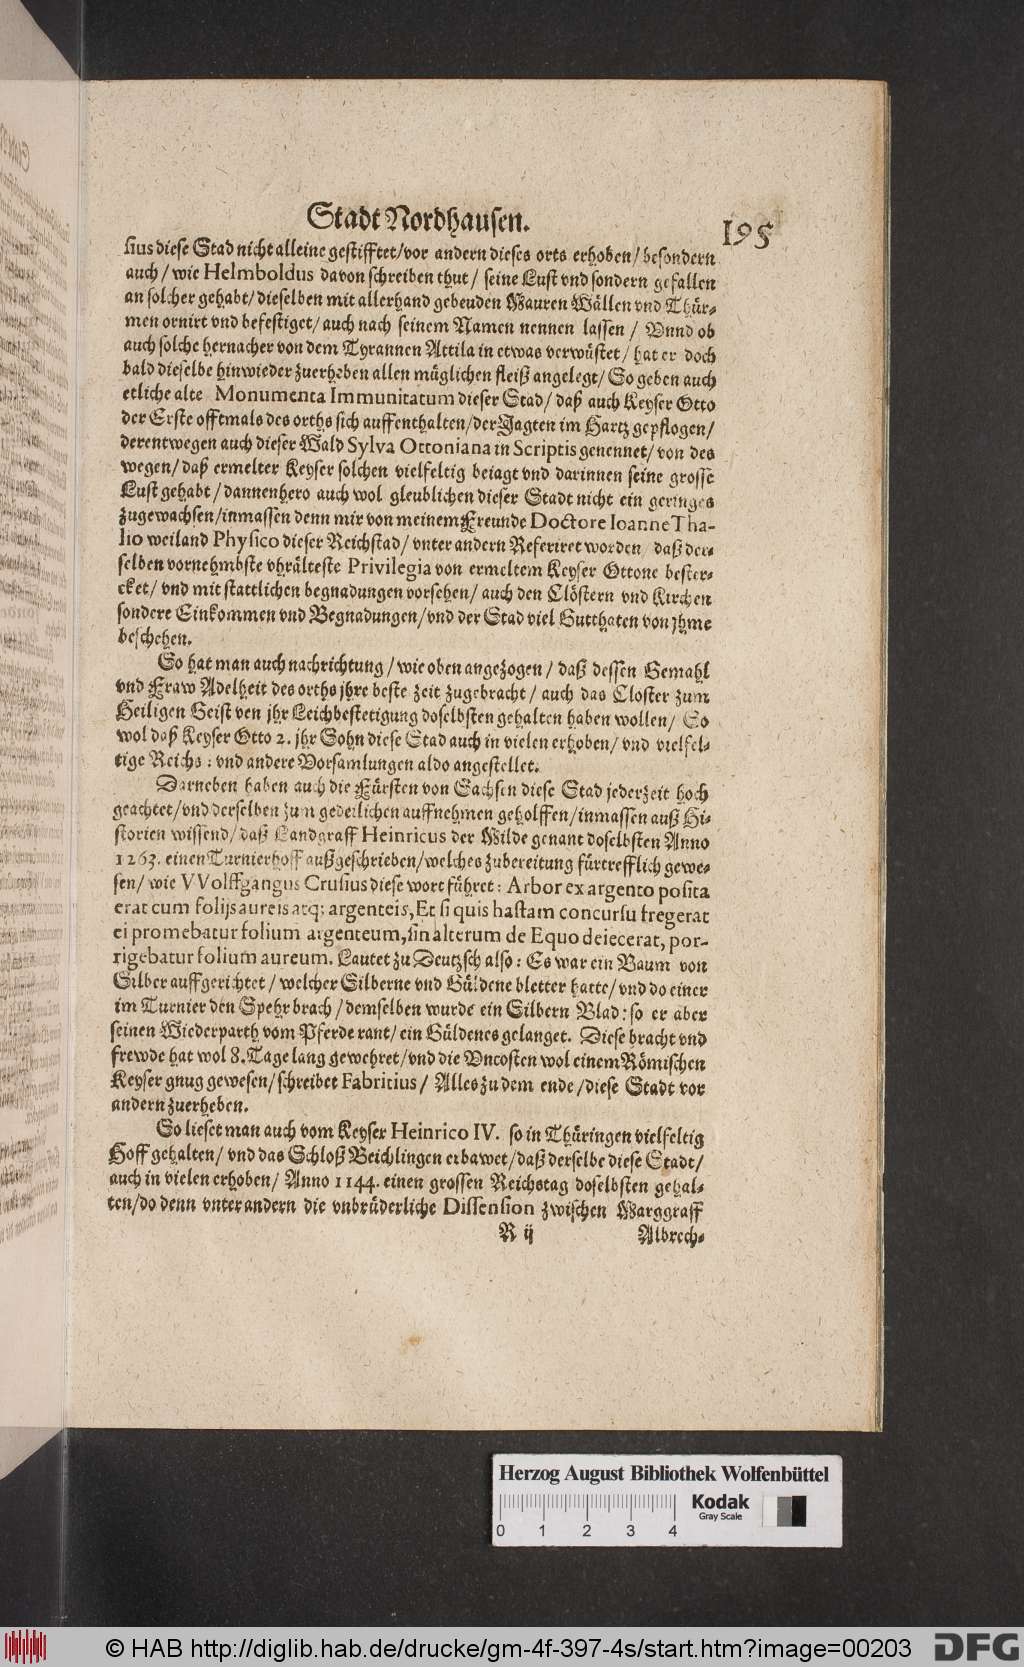 Stadt Nordhausen.
195
sius diese Stad nicht alleine gestifftet/vor andern dieses orts erhoben/ besondern
auch/ wie Helmboldus davon schreiben thut/ seine Lust vnd sondern gefallen
an solcher gehabt/ dieselben mit allerhand gebeuden Mauren Wällen vnd Thür-
men ornirt vnd befestiget/ auch nach seinem Namen nennen lassen/ Vnnd ob
auch solche hernacher von dem Tyrannen Attila in etwas verwüstet/ hat er doch
bald dieselbe hinwieder zuerheben allen müglichen fleiß angelegt/ So geben auch
etliche alte Monumenta Immunitatum dieser Stad/ daß auch Keyser Otto
der Erste offtmals des orths sich auffenthalten/der Jagten im Hartz gepflogen/
derentwegen auch dieser Wald Sylva Ottoniana in Scriptis genennet/ von des
wegen/ daß ermelter Keyser solchen vielfeltig beiagt vnd darinnen seine grosse
Lust gehabt/ dannenhero auch wol gleublichen dieser Stadt nicht ein geringes
zugewachsen/inmassen denn mir von meinem Freunde Doctore Ioanne Tha-
lio weiland Physico dieser Reichstad/ vnter andern Referiret worden/ daß der-
selben vornehmbste vhrälteste Privilegia von ermeltem Keyser Ottone bester-
cket/ vnd mit stattlichen begnadungen vorsehen/ auch den Clöstern vnd Kirchen
sondere Einkommen vnd Begnadungen/vnd der Stad viel Gutthaten von jhme
beschehen.
So hat man auch nachrichtung/ wie oben angezogen/ daß dessen Gemahl
vnd Fraw Adelheit des orths jhre beste zeit zugebracht/ auch das Closter zum
Heiligen Geist ven jhr Leichbestetigung doselbsten gehalten haben wollen/ So
wol daß Keyser Otto 2. jhr Sohn diese Stad auch in vielen erhoben/ vnd vielfel-
tige Reichs: vnd andere Vorsamlungen aldo angestellet.
Darneben haben auch die Fürsten von Sachsen diese Stad jederzeit hoch
geachtet/vnd derselben zum gedeilichen auffnehmen geholffen/inmassen auß Hi-
storien wissend/ daß Landgraff Heinricus der Milde genant doselbsten Anno
1263. einen Turnierhoff außgeschrieben/welches zubereitung fürtrefflich gewe-
sen/ wie VVolffgangus Crusius diese wort führet: Arbor ex argento posita
erat cum folijs aureis atq; argenteis, Et si quis hastam concursu fregerat
ei promebatur folium argenteum, sin alterum de Equo deiecerat, por-
rigebatur folium aureum. Lautet zu Deutzsch also: Es war ein Baum von
Silber auffgerichtet/ welcher Silberne vnd Güldene bletter hatte/ vnd do einer
im Turnier den Spehr brach/ demselben wurde ein Silbern Blad: so er aber
seinen Wiederparth vom Pferde rant/ ein Güldenes gelanget. Diese bracht vnd
frewde hat wol 8. Tage lang gewehret/vnd die Vncosten wol einem Römischen
Keyser gnug gewesen/schreibet Fabritius/ Alles zu dem ende/diese Stadt vor
andern zuerheben.
So lieset man auch vom Keyser Heinrico IV. so in Thüringen vielfeltig
Hoff gehalten/ vnd das Schloß Beichlingen erbawet/daß derselbe diese Stadt/
auch in vielen erhoben/ Anno 1144. einen grossen Reichstag doselbsten gehal-
ten/do denn vnter andern die vnbrüderliche Dissension zwischen Marggraff
R ij
Albrech-
Herzog August Bibliothek Wolfenbüttel
0 1 2 3 4
Kodak
Gray Scale
© HAB http://diglib.hab.de/drucke/gm-4f-397-4s/start.htm?image=00203
DFG